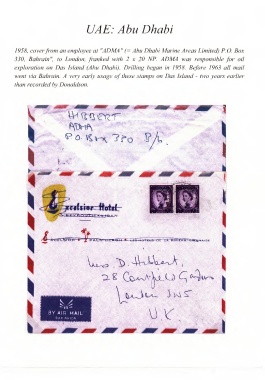 UAE: Abu Dhabi
1958, cover from an employee at "ADMA" (= Abu Dhabi Marine Areas Limited) P.O. Box
330, Bahrain", to London, franked with 2 x 20 NP. ADMA was responsible for oil
exploration on Das Island (Abu Dhabi). Drilling began in 1958. Before 1963 all mail
went via Bahrain. A very early usage of these stamps on Das Island - two years earlier
than recorded by Donaldson.
HIBBERT
ADMA
P.O. Box 330
Excelsior Hotel
Mrs D. Hibbert,
28 Gardens
London
U.K.
BY AIR MAIL
PAR AVION